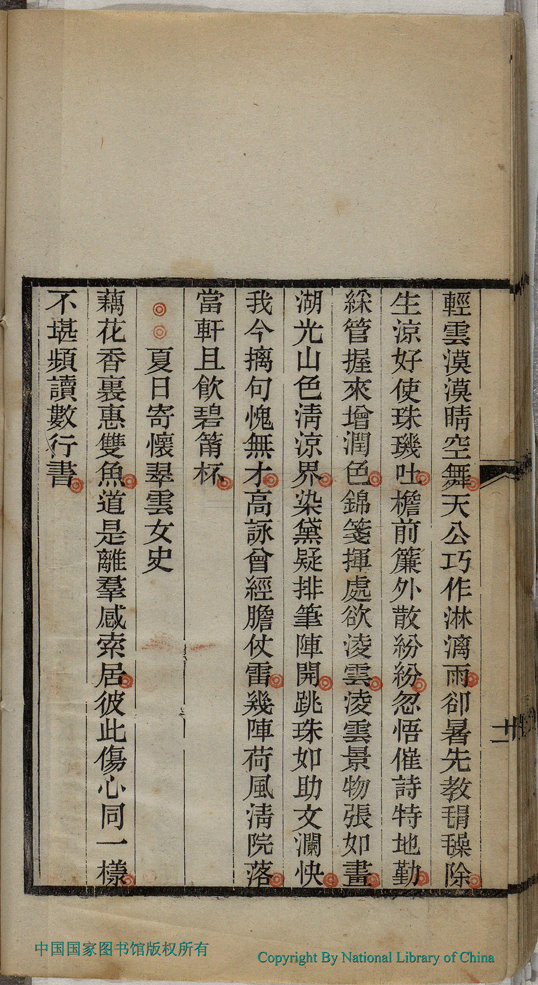 輕雲漠漠晴空舞天公巧作淋漓雨卻暑先教𣰦𣰦除
生涼好使珠璣吐檐前簾外散紛紛忽悟催詩特地勤
綵管握來增潤色錦箋揮處欲淩雲淩雲景物張如畫
湖光山色清涼界染黛疑排筆陣開跳珠如助文瀾快
我今摛句愧無才高詠曾經膽仗雷幾陣荷風清院落
當軒且飲碧筩杯
夏日寄懷翠雲女史
藕花香裏惠雙魚道是離羣感索居彼此傷心同一樣
不堪頻讀數行書
十二
中国国家图书馆版权所有
Copyright By National Library of China